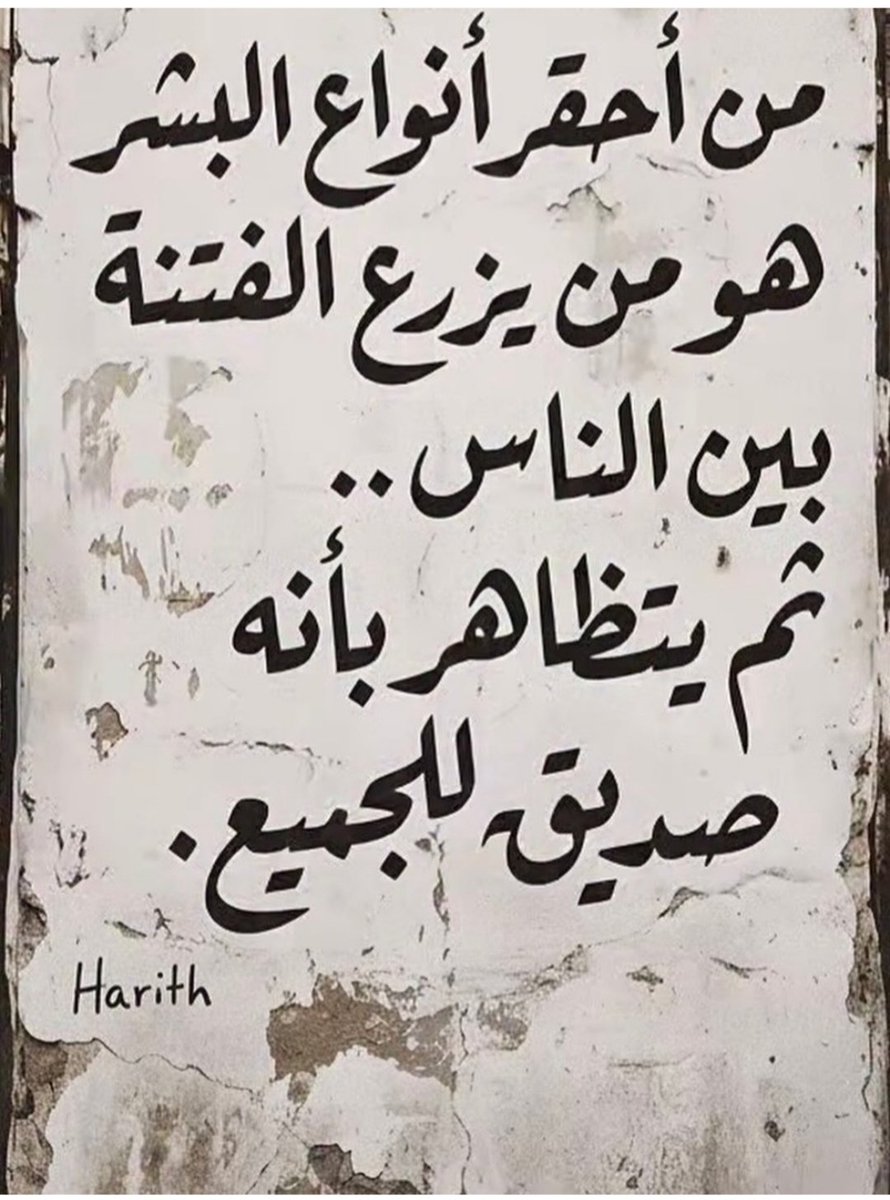 من أحقر أنواع البشر
هو من يزرع الفتنة
بين الناس..
ثم يتظاهر بأنه
صديق للجميع.
Harith